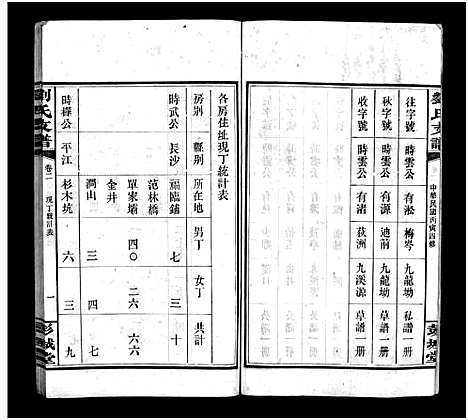 劉氏支譜
中華民國丙寅四修
彭城堂
往字號 時雲公 有淞 梅岑 私譜一册
秋字號 時雲公 迪前 九龍坳 草譜一册
收字號 時雲公 有渚 荻洲 九溪源 草譜一册
各房住址現丁統計表
房别 縣别 所在地 男丁 女丁 共計
時武公 長沙 福臨鋪 七 三
范林橋
單家塅 四〇 二六 六六
金井
澗山 三 四 七
時檡公 平江 杉木坑 六 三 九
劉氏支譜
卷二 現丁統計表 一
彭城堂